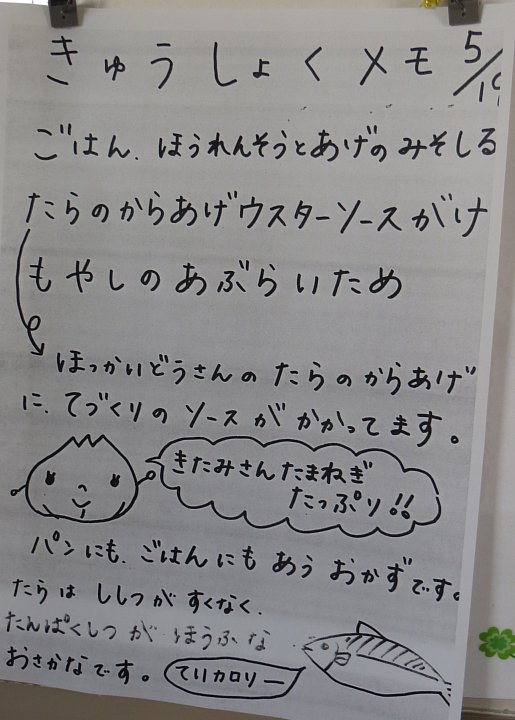 きゅうしょくメモ 5/19
ごはん、ほうれんそうとあげのみそしる
たらのからあげウスターソースがけ
もやしのあぶらいため
ほっかいどうさんのたらのからあげ
に、てづくりのソースがかかってます。
きたみさんたまねぎ
たっぷり!!
パンにも、ごはんにもあうおかずです。
たらはししつがすくなく、
たんぱくしつがほうふな
おさかなです。
ていカロリー